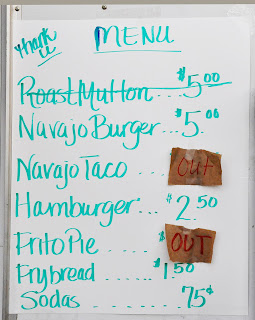 thank u
MENU
Roast Mutton... $5.00
Navajo Burger... $5.00
Navajo Taco .... OUT
Hamburger... $2.50
Frito Pie .... $ OUT
Frybread ...... $1.50
Sodas ..... 75¢